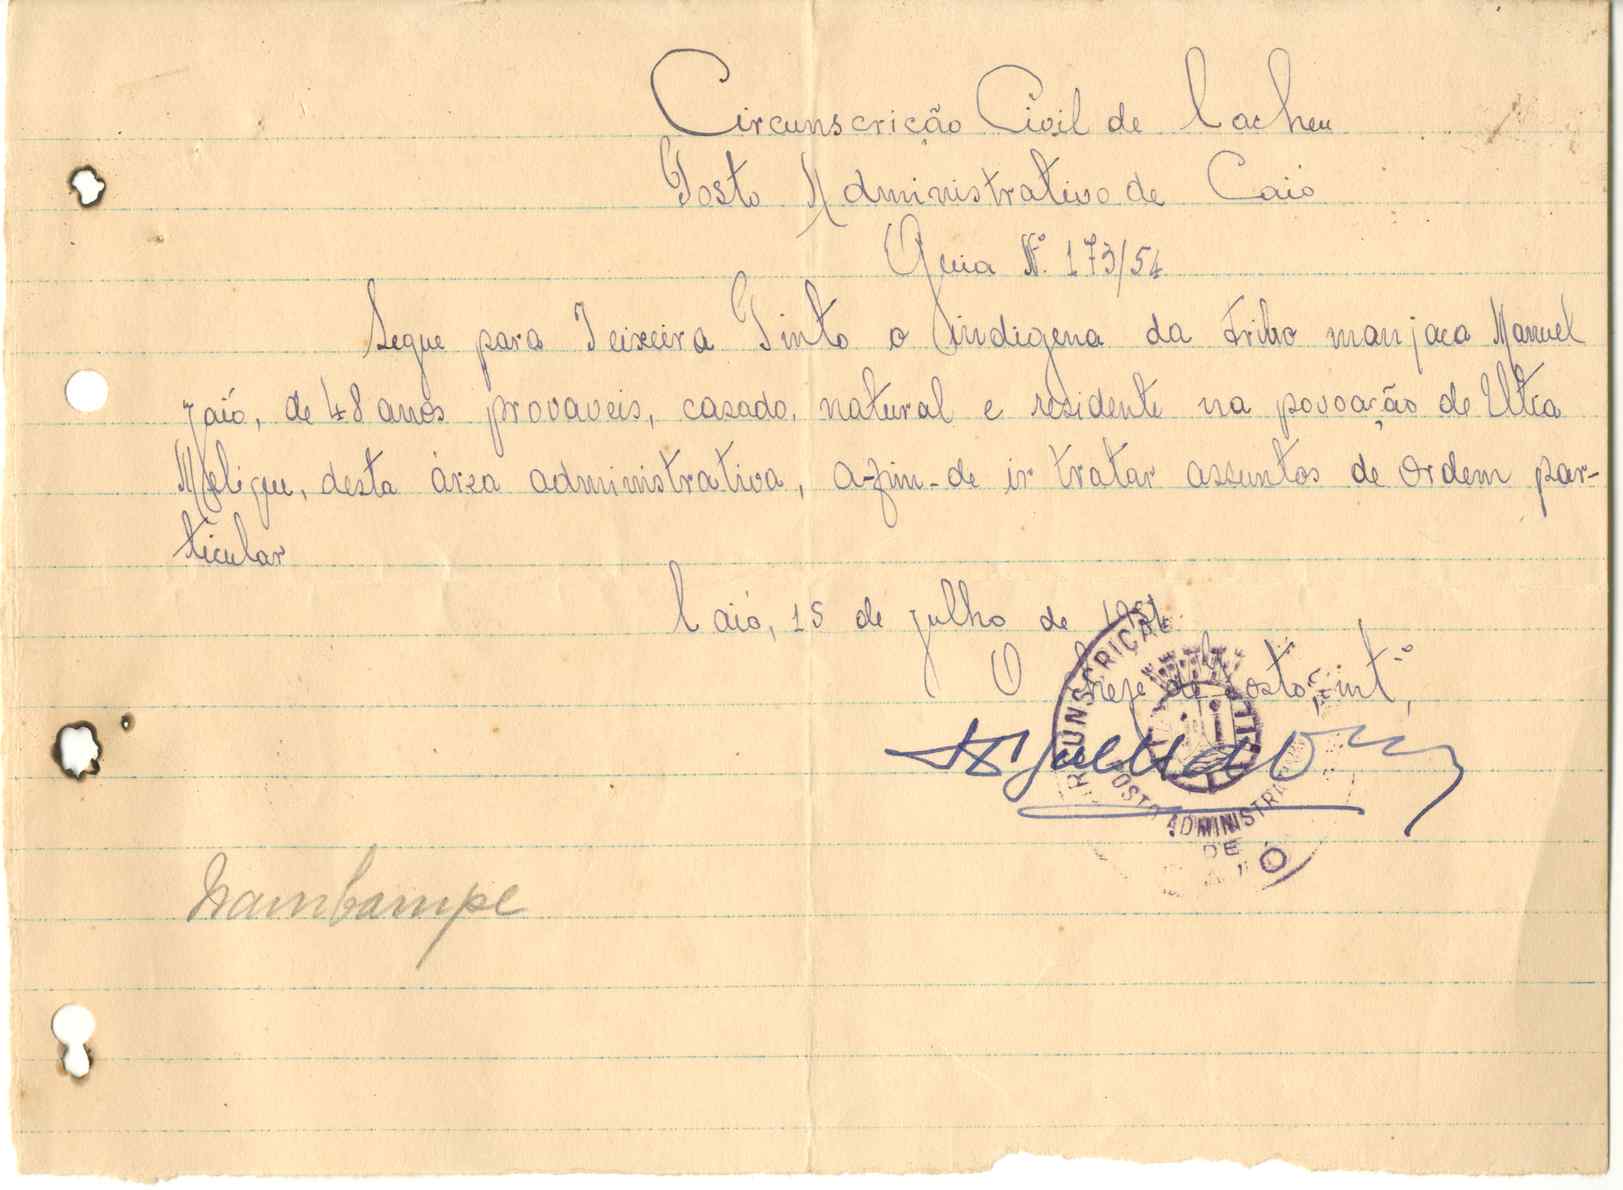 Circunscrição Civil de Cacheu
Posto Administrativo de Caió
Guia Nº. 173/54
Segue para Teixeira Pinto o indigena da tribo manjaca Manuel
Jaió, de 48 anos provaveis, casado, natural e residente na povoação de
desta área administrativa, a-fim-de ir tratar assuntos de ordem par-
ticular
Caió, 15 de julho de 1954
O Chefe de Posto intº,
CIRCUNSCRIÇÃO CIVIL
POSTO ADMINISTRA
DE
Ó